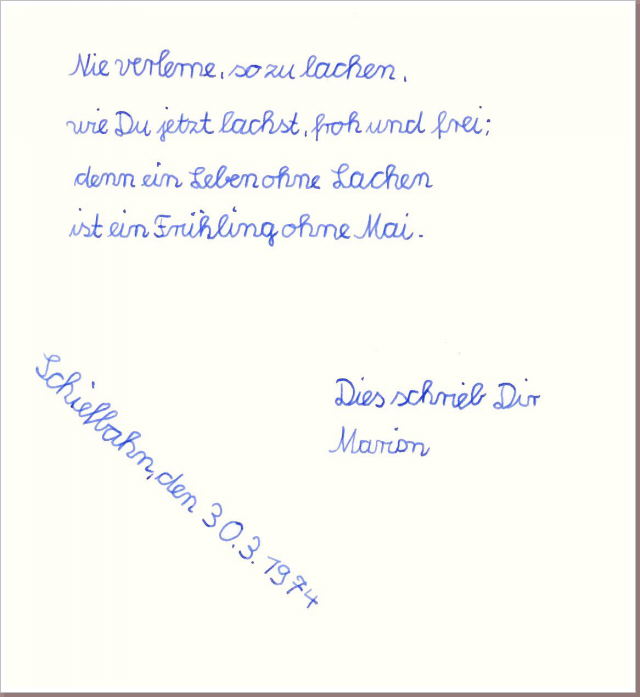 Nie verlerne, so zu lachen,
wie Du jetzt lachst, froh und frei;
denn ein Leben ohne Lachen
ist ein Frühling ohne Mai.
Dies schrieb Dir
Marion
Schiefbahn, den 30.3.1974